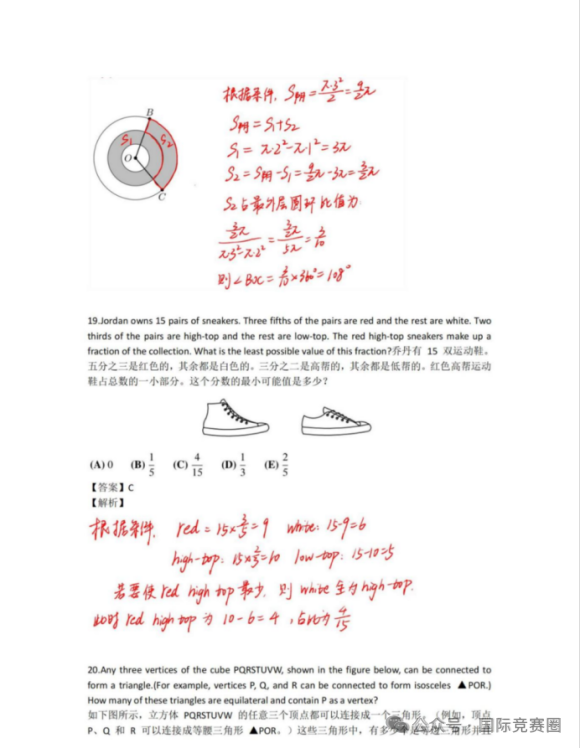 B
S₁
S₂
O
C
根据条件, S阴 = π·3²/2 = 9/2π
S阴 = S₁+S₂
S₁ = π·2²-π·1² = 3π
S₂ = S阴-S₁ = 9/2π-3π = 3/2π
S₂占最外层圆环比值为
3/2π / π·3²-π·2² = 3/2π / 5π = 3/10
则∠BOC = 3/10×360° = 108°
19.Jordan owns 15 pairs of sneakers. Three fifths of the pairs are red and the rest are white. Two
thirds of the pairs are high-top and the rest are low-top. The red high-top sneakers make up a
fraction of the collection. What is the least possible value of this fraction?乔丹有 15 双运动鞋。
五分之三是红色的，其余都是白色的。三分之二是高帮的，其余都是低帮的。红色高帮运动
鞋占总数的一小部分。这个分数的最小可能值是多少？
(A) 0 (B) 1/5 (C) 4/15 (D) 1/3 (E) 2/5
【答案】C
【解析】
根据条件, red = 15×3/5 = 9 white: 15-9=6
high-top: 15×2/3=10 low-top: 15-10=5
若要使 red high top 最少, 则 white 全为 high-top.
此时 red high top 为 10-6=4 , 占比为 4/15
20.Any three vertices of the cube PQRSTUVW, shown in the figure below, can be connected to
form a triangle.(For example, vertices P, Q, and R can be connected to form isosceles ▲POR.)
How many of these triangles are equilateral and contain P as a vertex?
如下图所示，立方体 PQRSTUVW 的任意三个顶点都可以连接成一个三角形。（例如，顶点
P、Q 和 R 可以连接成等腰三角形 ▲POR。）这些三角形中，有多少个是等边三角形并且
公众号 · 国际竞赛圈